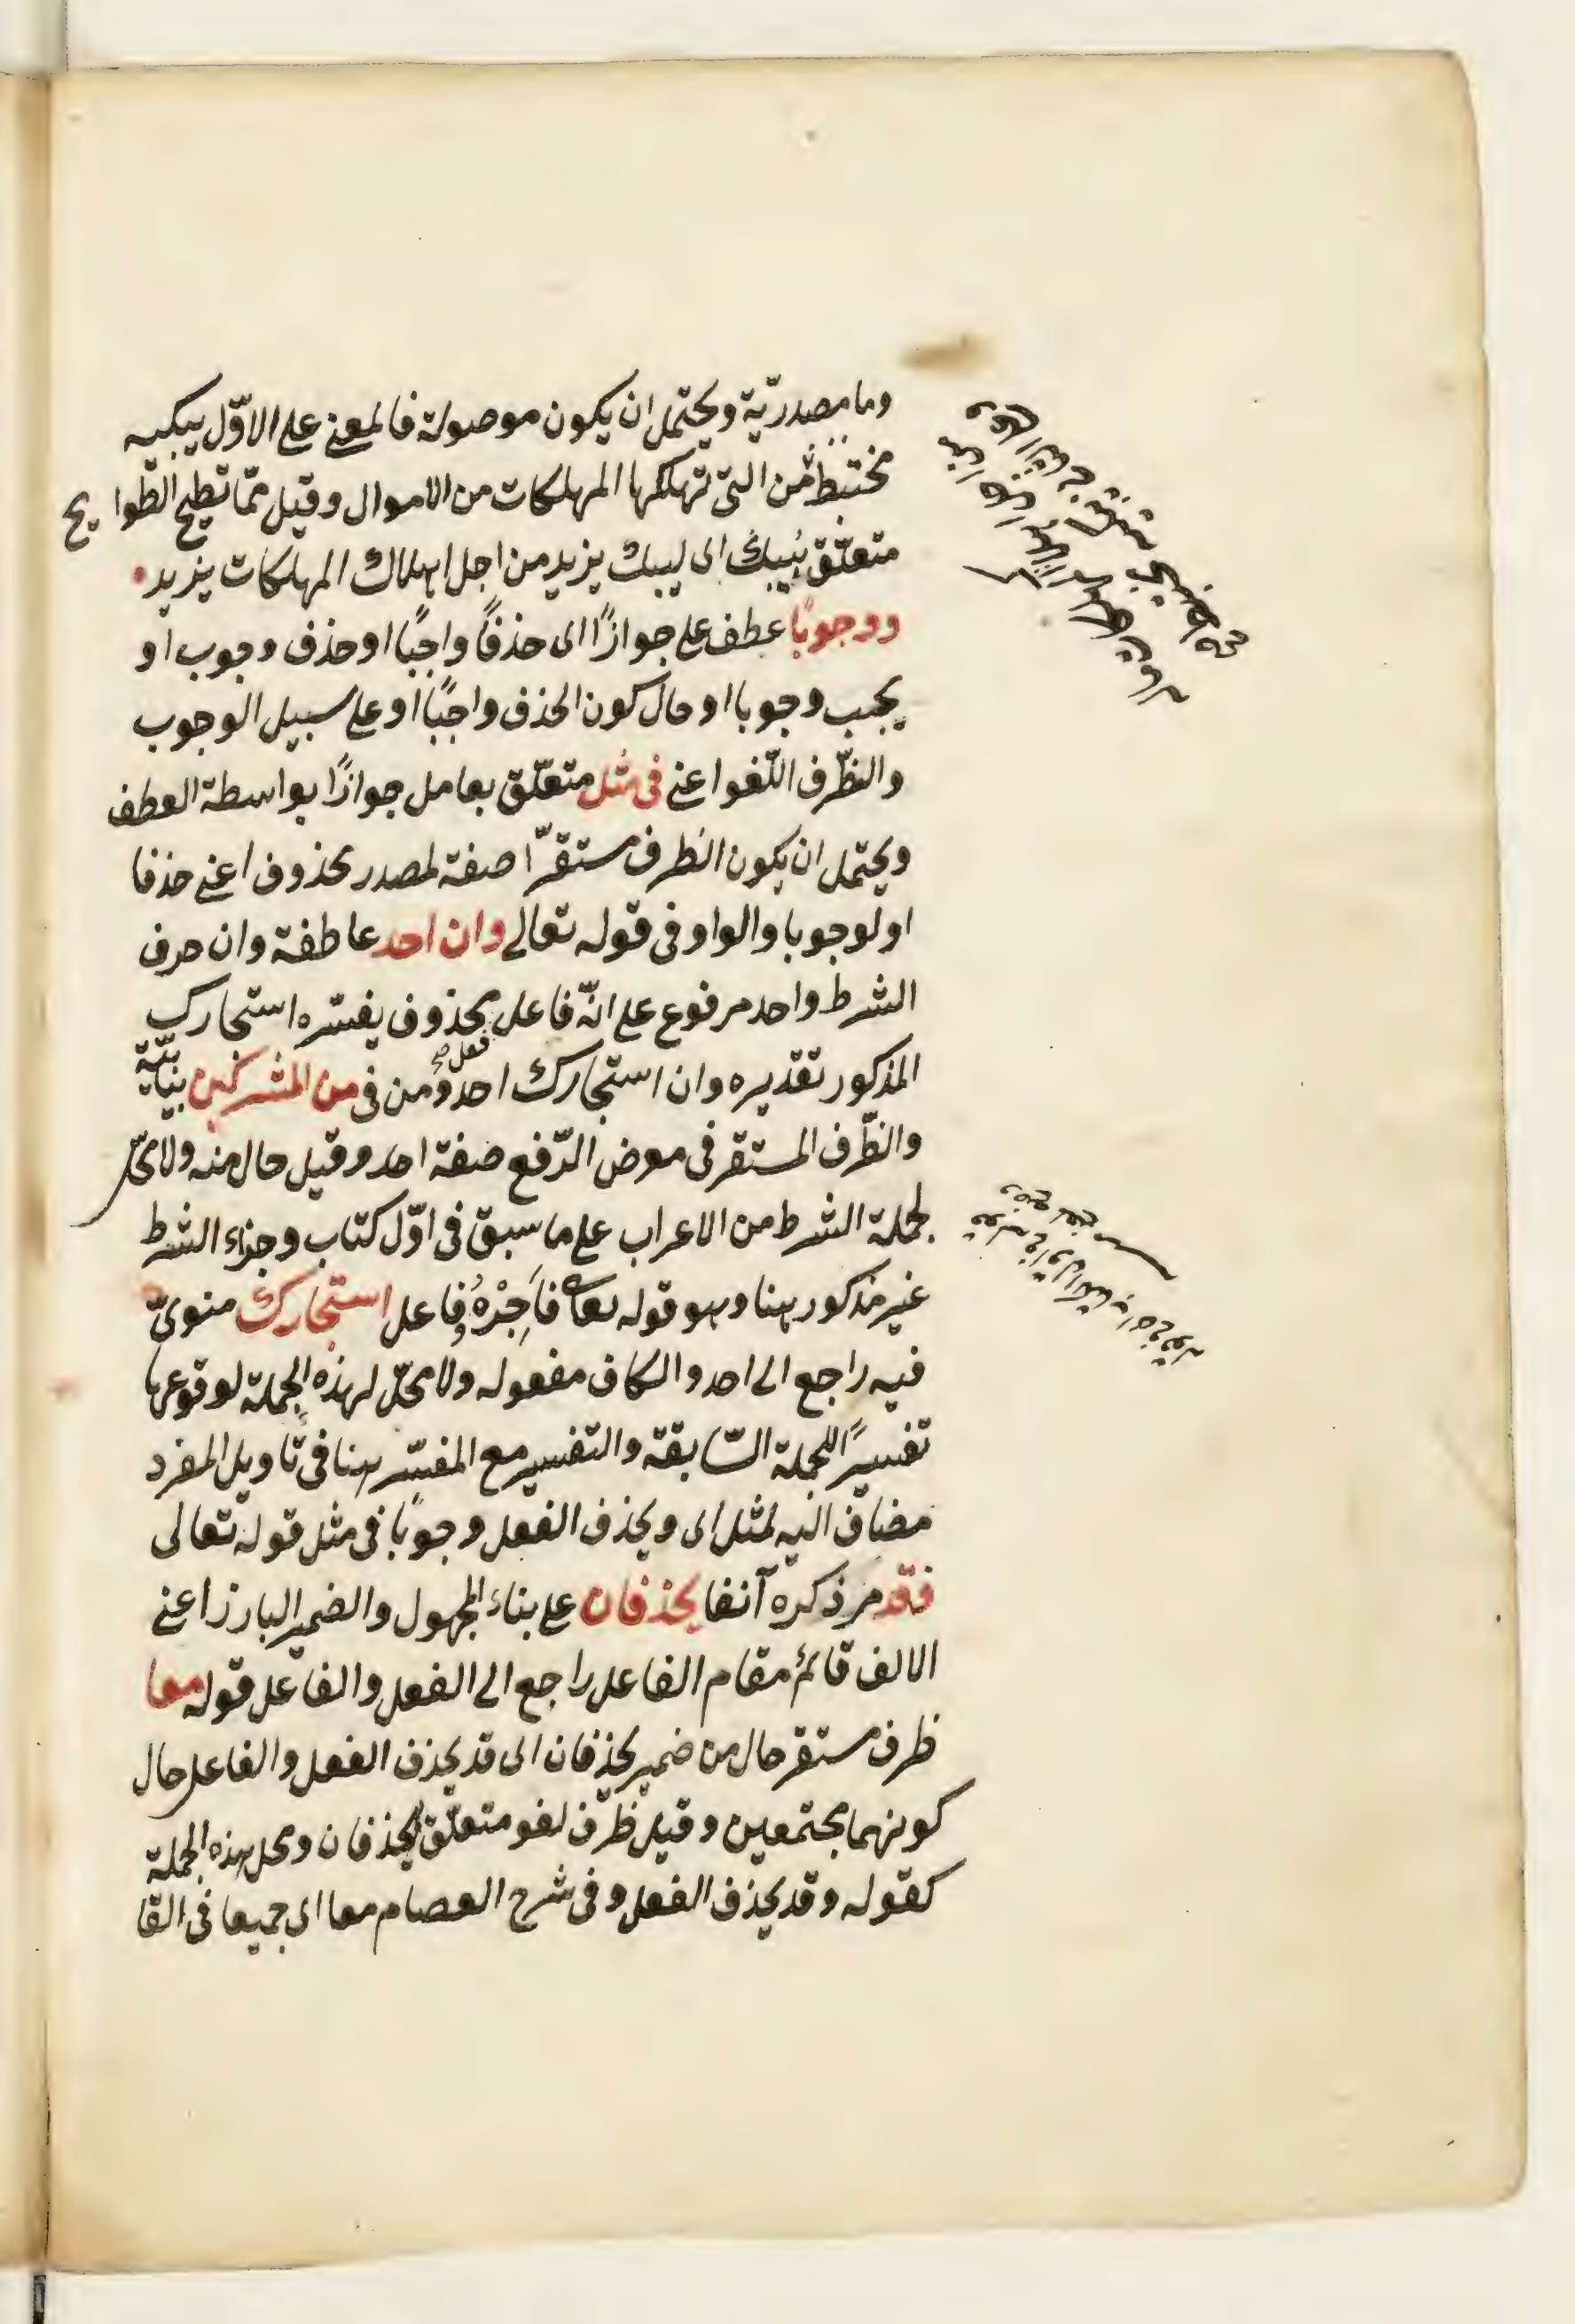 وما مصدريّة ويحتمل ان يكون موصولة فالمعنى على الاوّل يبكيه
مختبط من التى تهلكها المهلكات من الاموال وقيل ممّا تطيح الطوايح
متعلّق بيبك اى ليبك يزيد من اجل اهلاك المهلكات يزيد
ووجوبًا عطف على جوازًا اى حذفًا واجبًا او حذف وجوب او
يجب وجوبا او حال كون الحذف واجبًا او على سبيل الوجوب
والظّرف اللّغو اعنى فى مثل متعلّق بعامل جوازًا بواسطة العطف
ويحتمل ان يكون الظرف مستقرّا صفة لمصدر محذوف اعنى حذفا
او لوجوبا والواو فى قوله تعالى وان احد عاطفة وان حرف
الشرط واحد مرفوع على انّه فاعل فعل محذوف يفسّره استجارك
المذكور تقديره وان استجارك احد ومن فى من المشركين بيانيّة
والظّرف المستقر فى معرض الرّفع صفة احد وقيل حال منه ولا محلّ
لجملة الشرط من الاعراب على ما سبق فى اوّل كتاب وجزاء الشرط
غير مذكور هنا وهو قوله تعالى فَاَجِرْهُ وفاعل استجارك منوىّ
فيه راجع الى احد والكاف مفعوله ولا محلّ لهذه الجملة لوقوعها
تفسيرًا للجملة السّابقة والتفسير مع المفسّر هنا فى تأويل المفرد
مضاف اليه لمثل اى ويحذف الفعل وجوبًا فى مثل قوله تعالى
فقد مر ذكره آنفا يحذفان على بناء المجهول والضمير البارز اعنى
الالف قائم مقام الفاعل راجع الى الفعل والفاعل قوله معا
ظرف مستقر حال من ضمير يحذفان اى قد يحذف الفعل والفاعل حال
كونهما مجتمعين وقيل ظرف لغو متعلّق ليحذفان ومحل هذه الجملة
كقوله وقد يحذف الفعل وفى شرح العصام معا اى جميعا فى القا